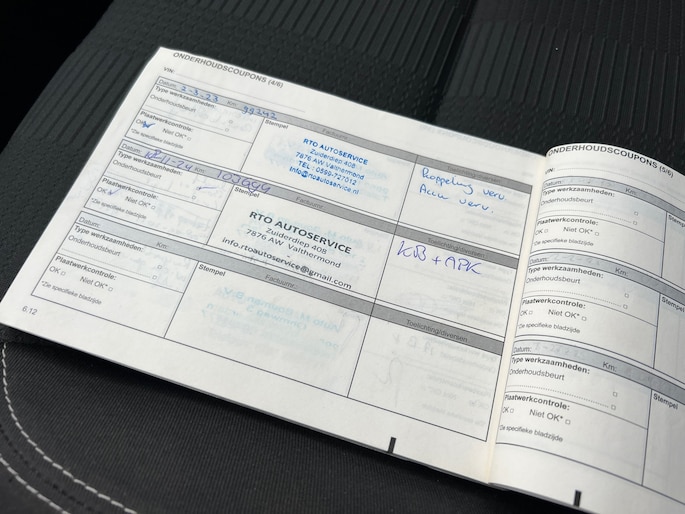 ONDERHOUDSCOUPONS (4/6)
VIN:
Datum: 2-3-23 Km: 99242
Type werkzaamheden:
Onderhoudsbeurt
Plaatwerkcontrole:
OK Niet OK*
*Zie specifieke bladzijde
Stempel
Factuurnr.
RTO AUTOSERVICE
Zuiderdiep 408
7876 AW Valthermond
TEL.: 0599-727012
Koppeling verv.
Accu verv.
Datum: Km:
Type werkzaamheden:
Onderhoudsbeurt
Plaatwerkcontrole:
OK Niet OK*
*Zie specifieke bladzijde
Stempel
Factuurnr.
RTO AUTOSERVICE
Zuiderdiep 408
7876 AW Valthermond
info.rtoautoservice@gmail.com
KB + APK
Datum: Km:
Type werkzaamheden:
Onderhoudsbeurt
Plaatwerkcontrole:
OK Niet OK*
*Zie specifieke bladzijde
Stempel
Factuurnr.
Toelichting/diversen
6.12
ONDERHOUDSCOUPONS (5/6)
VIN:
Datum: Km:
Type werkzaamheden:
Onderhoudsbeurt
Plaatwerkcontrole:
OK Niet OK*
*Zie specifieke bladzijde
Stempel
Datum: Km:
Type werkzaamheden:
Onderhoudsbeurt
Plaatwerkcontrole:
OK Niet OK*
*Zie specifieke bladzijde
Stempel
Datum: Km:
Type werkzaamheden:
Onderhoudsbeurt
Plaatwerkcontrole:
OK Niet OK*
*Zie specifieke bladzijde
Stempel